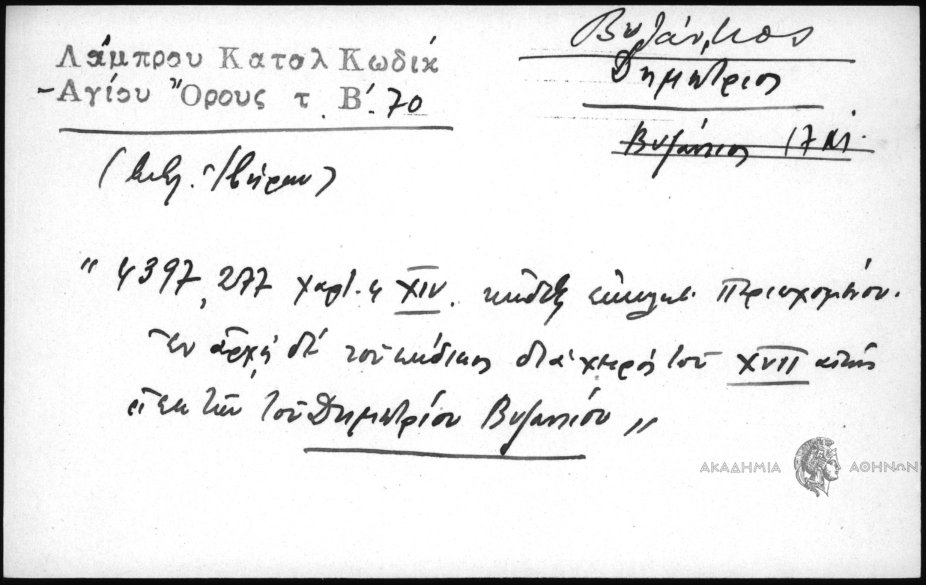 Λάμπρου Καταλ Κωδικ
-Αγίου Ὄρους τ. Β'. 70
Βυζάντιος
Δημήτριος
Βυζάντιος 17 αἰ.
(Βιβλ. Ἰβήρων)
" 4397, 277 χαρτ. 4 XIV. κῶδιξ περιεχομένου.
Ἐν ἀρχῇ δὲ τοῦ κώδικος διὰ χειρὸς τοῦ XVII
τοῦ Δημητρίου Βυζαντίου "
ΑΚΑΔΗΜΙΑ ΑΘΗΝΩΝ